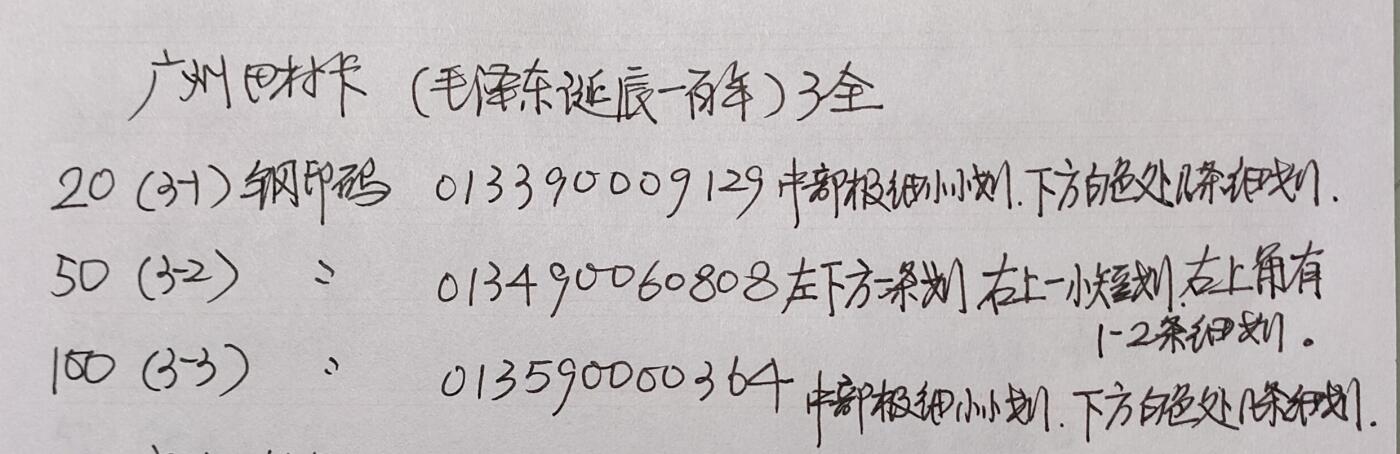 广州田村卡 (毛泽东诞辰一百年) 3全
20 (3-1) 钢印码 013390009129 中部极细小小划.下方白色处几条细划.
50 (3-2) 〃 013490060808 左下方一条划 右上一小短划.右上角有
1-2条细划。
100 (3-3) 〃 013590000364 中部极细小小划.下方白色处几条细划.